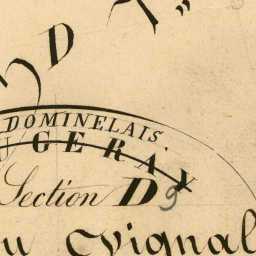 D
DOMINELAIS.
UGERAY
Section D 9
u Vignal